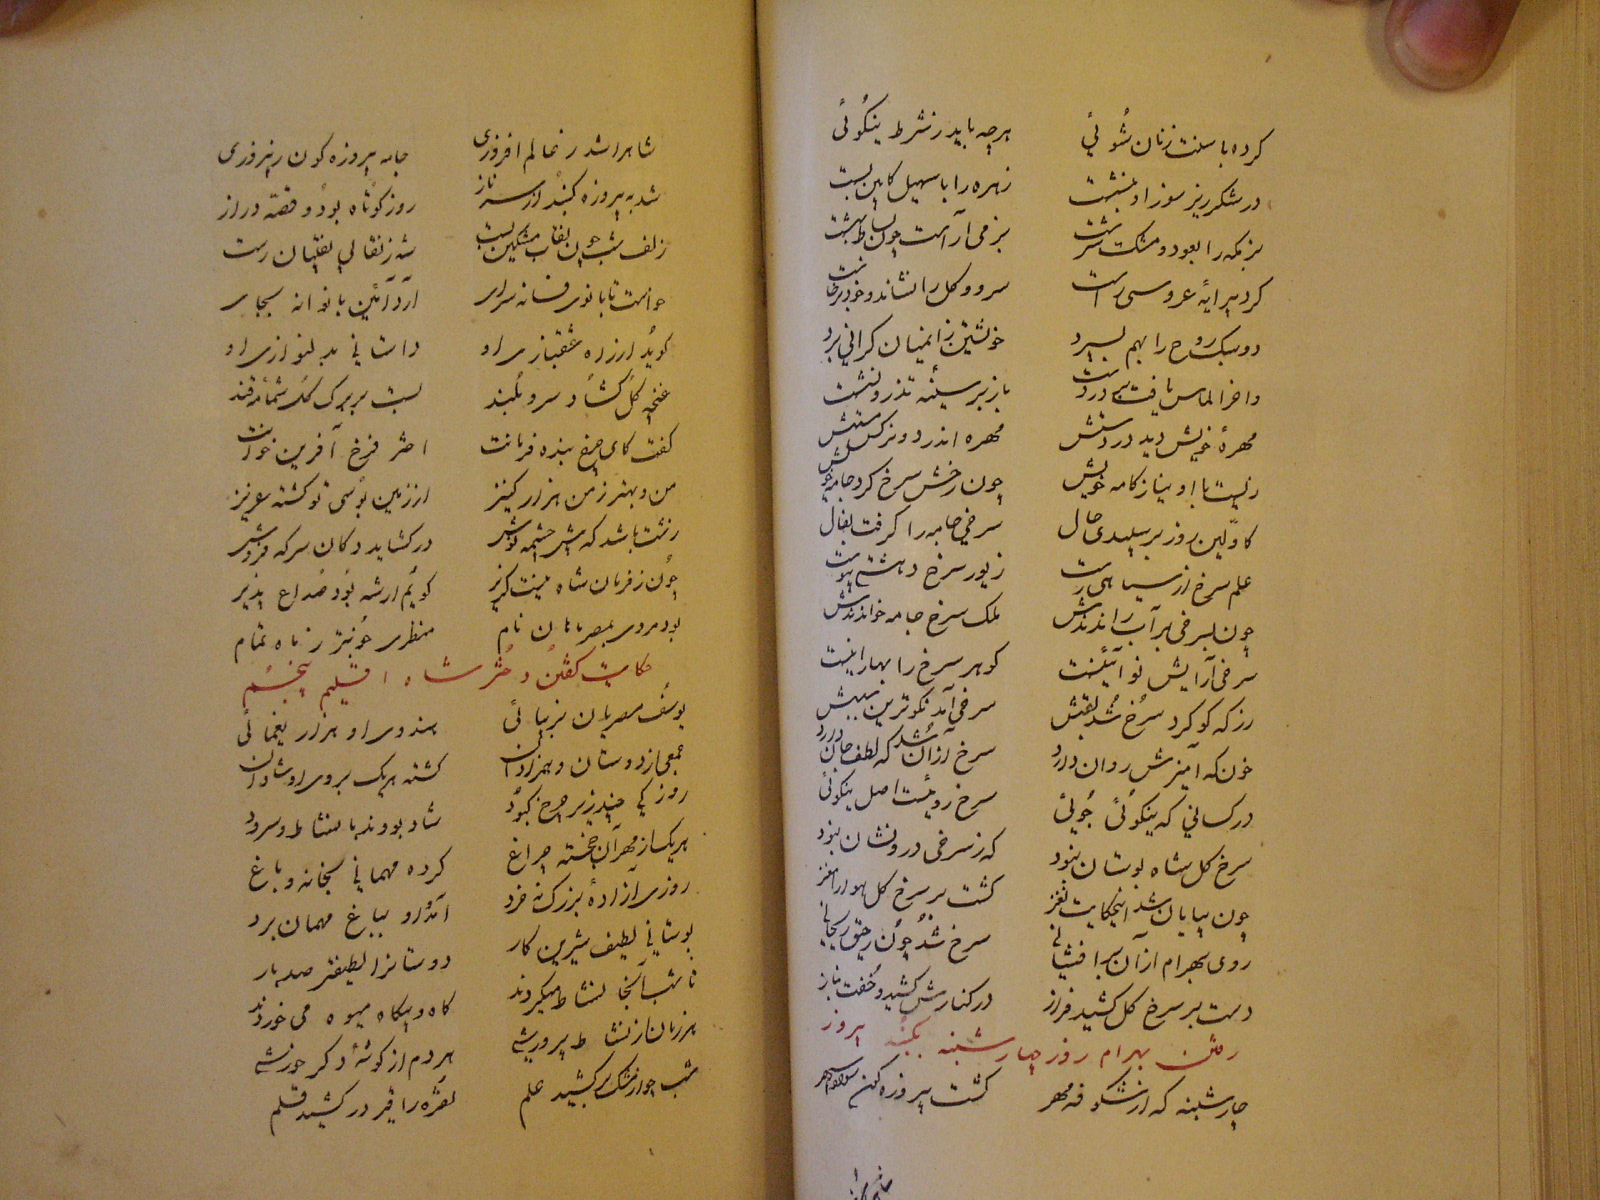 کرده با سنت زنان شوئی هرچه باید ز شرط نیکوئی
در شکرریز سوز او بنشست زهره را با سهیل کابین بست
بزمگه را بعود و مشک سرشت بزمی آراست چون بساط بهشت
کرد پیرایه عروسی راست سرو و گل را نشاند و خود برخاست
دو سبک روح را بهم بسپرد خویشتن زانمیان گرانی برد
مهره خویش دید در دستش مهره اندر دو نرگس مستش
زیست با او بناز و کامه خویش چون رخش سرخ کرد جامه خویش
کاولین روز بر سپیدی حال سرخی جامه را گرفت بفال
علم سرخ از سیاهی رست زیور سرخ داشتی پیوست
چون بسرخی برات راندندش ملک سرخ جامه خواندندش
سرخی آرایش نو آئینست گوهر سرخ را بها اینست
زر که گوگرد سرخ شد لقبش سرخی آمد نکوترین سببش
خون که آمیزش روان دارد سرخ از آن شد که لطف جان دارد
در کسانی که نیکوئی جوئی سرخ روئیست اصل نیکوئی
سرخ گل شاه بوستان نبود که ز سرخی درو نشان نبود
چون بپایان شد اینحکایت نغز گشت پر سرخ گل هوا را مغز
روی بهرام از آن برافشانی سرخ شد چون رحیق ریحانی
دست بر سرخ گل کشید فراز در کنارش کشید و خفت بناز
رفتن بهرام روز چهارشنبه بگنبد پیروزه
چارشنبه که از شکوفه مهر گشت پیروزه گون سواد سپهر
شاه را شد ز عالم افروزی جامه پیروزه گون ز پیروزی
شد به پیروزه گنبد از سر ناز روز کوتاه بود و قصه دراز
زلف شب چون نقاب مشکین بست شه ز نقالی نقیبان رست
خواست تا بانوی فسانه سرای آرد آئین بانوانه بجای
گوید از راه عشقبازی او داستانی بدلنوازی او
غنچه گل گشاد سرو بلند بست بر برگ گل شمامه قند
گفت کای چرخ بنده فرمانت اختر فرخ آفرین خوانت
من و بهتر ز من هزار کنیز از زمین بوسی تو گشته عزیز
زشت باشد که پیش چشمه نوش درگشاید دکان سرکه فروش
چون ز فرمان شاه نیست گزیر گویم ار شه بود صداع پذیر
بود مردی بمصر ماهان نام منظری خوبتر ز ماه تمام
حکایت گفتن دختر شاه اقلیم پنجم
یوسف مصریان بزیبائی هندوی او هزار یغمائی
جمعی از دوستان و همزادان گشته هریک بروی او شادان
روزکی چند زیر چرخ کبود شاد بودند با نشاط و سرود
هریک از بهر آن خجسته چراغ کرده مهمانی بخانه و باغ
روزی آزاده بزرگ نه خرد آمد او را بباغ مهمان برد
بوستانی لطیف شیرین کار دوستان زو لطیفتر صد بار
تا شب آنجا نشاط میکردند گاه و بیگاه میوه می خوردند
هر زمان از نشاط پرورشی هر دم از گوشه دگر خورشی
شب چو از مشک برکشید علم نقره را قیر درکشید قلم